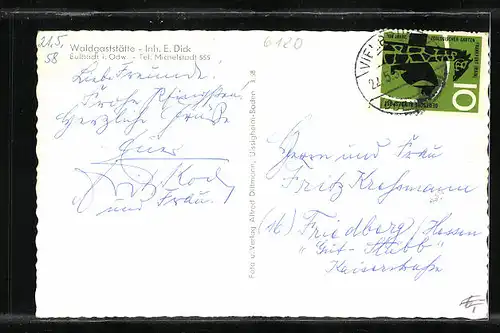 21.5.
58
Waldgaststätte - Inh. E. Dick
Eulbach i. Odw. - Tel. Michelstadt 555
6120
Liebe Freunde!
Frohe Pfingsten!
Herzliche Grüße
Euer
Koch
und Frau.
Foto u. Verlag Alfred Dittmann, Ussigheim-Baden
VIEL
22.5
100 JAHRE ZOOLOGISCHER GARTEN
FRANKFURT/MAIN
DEUTSCHE BUNDESPOST
10
Herrn und Frau
Fritz
(16) Friedberg / Hessen
"Gut-Stubb"
Kaiserstraße